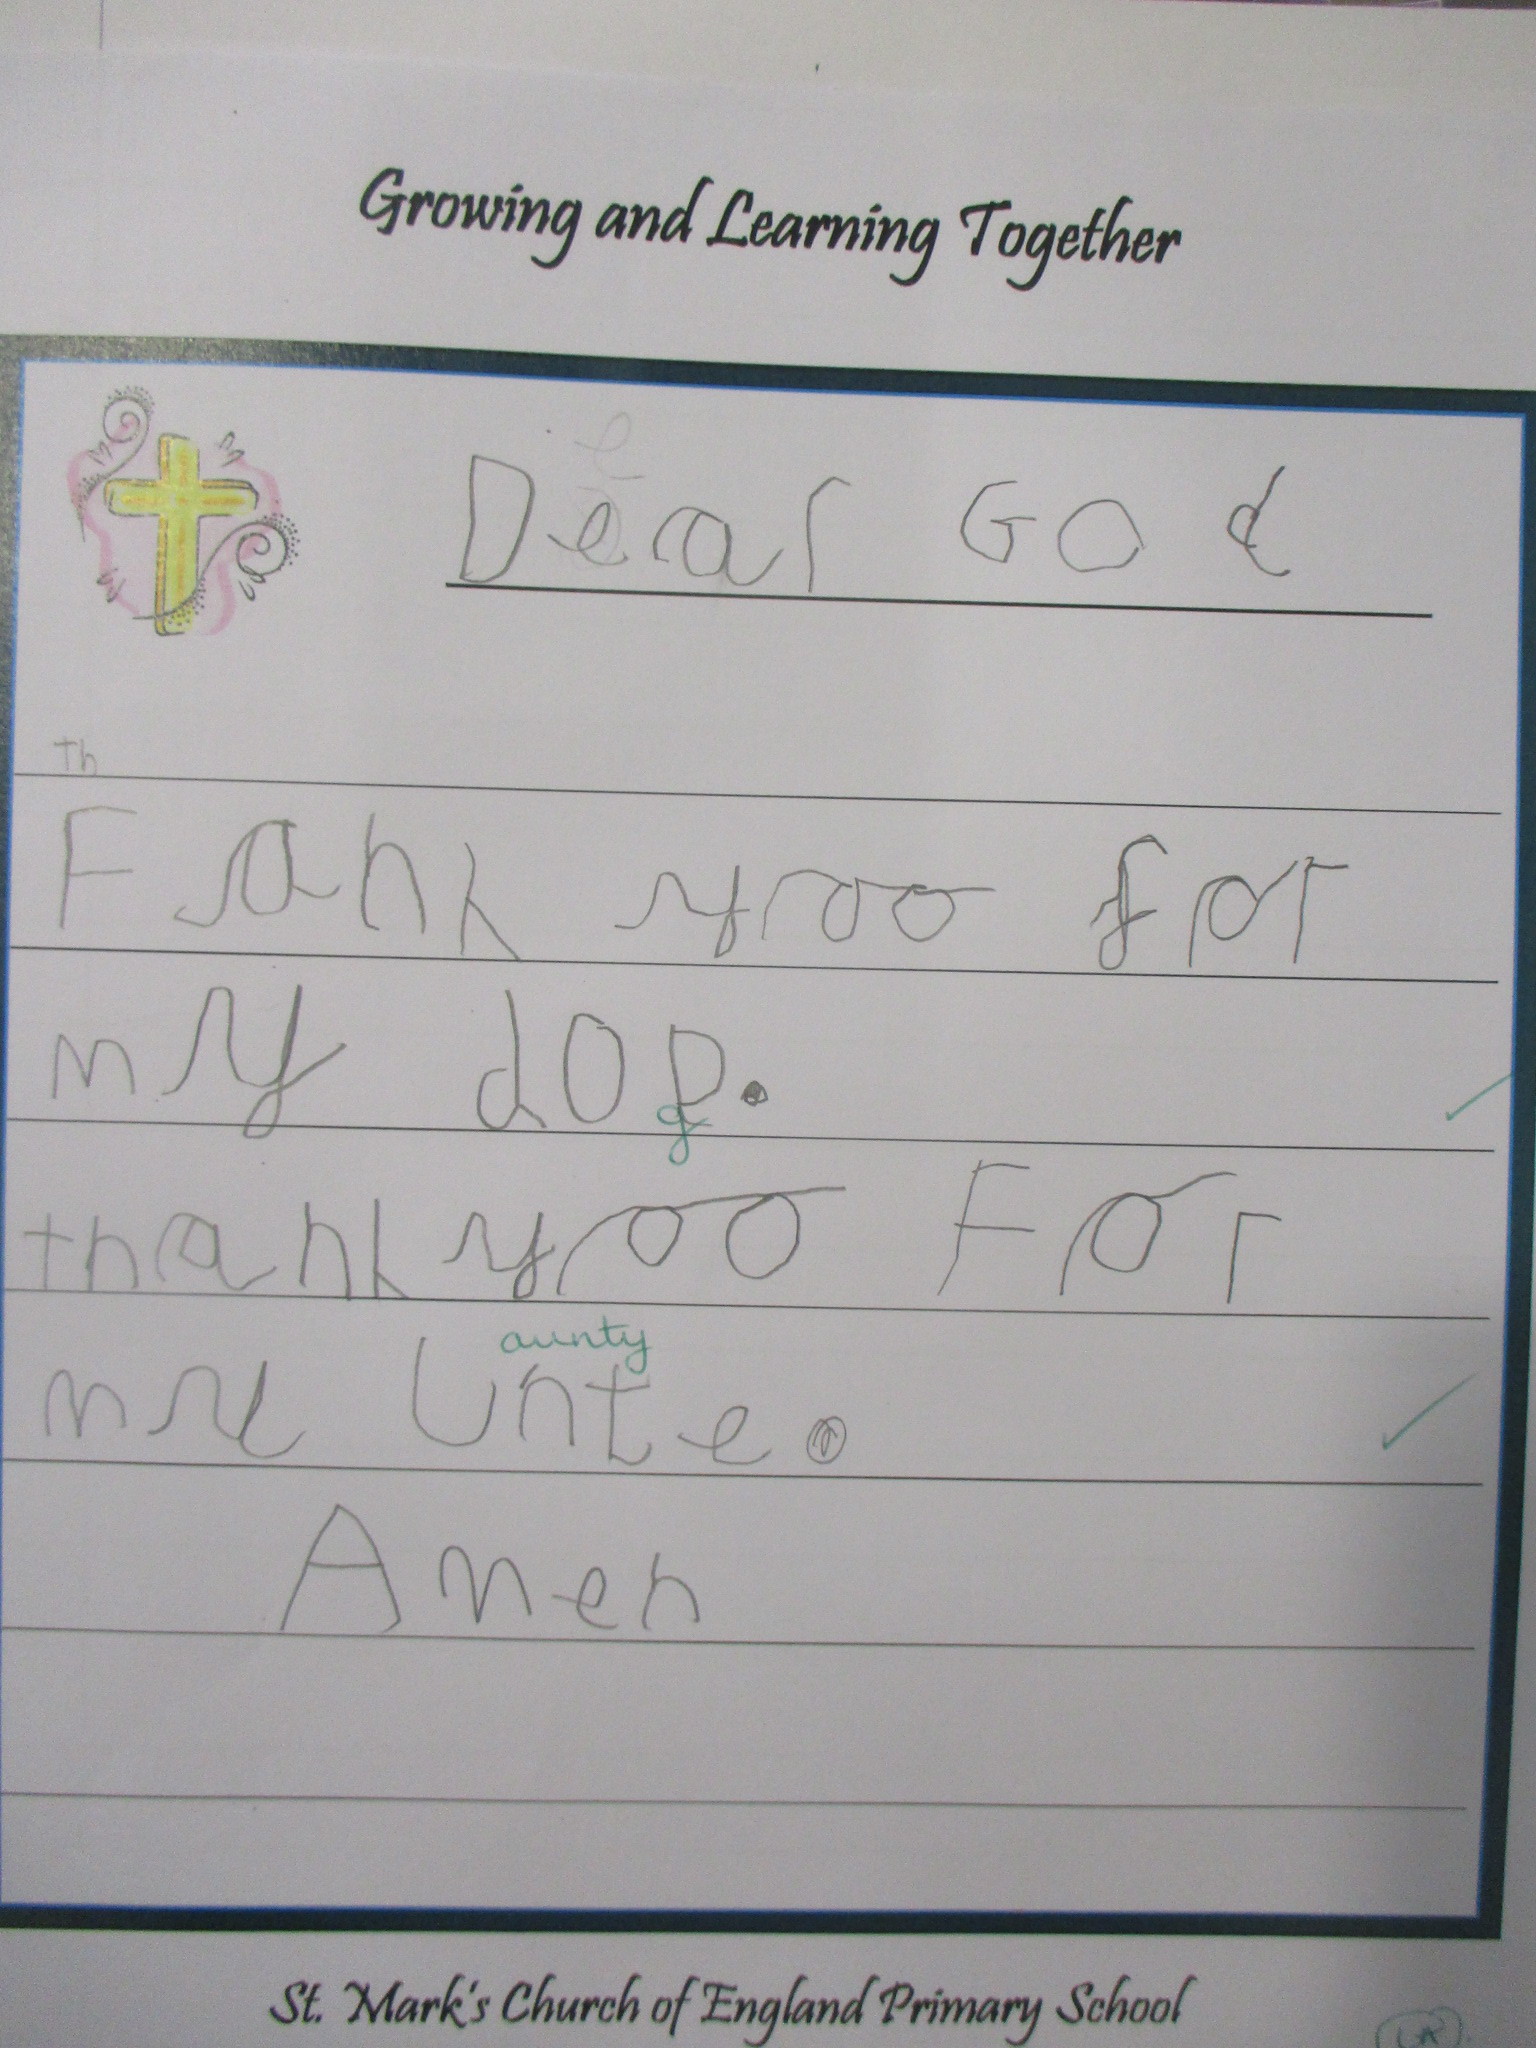 Growing and Learning Together
Dear God
Th
Fank yoo for
my dop.
g
thank yoo For
aunty
my Unte.
Amen
St. Mark's Church of England Primary School